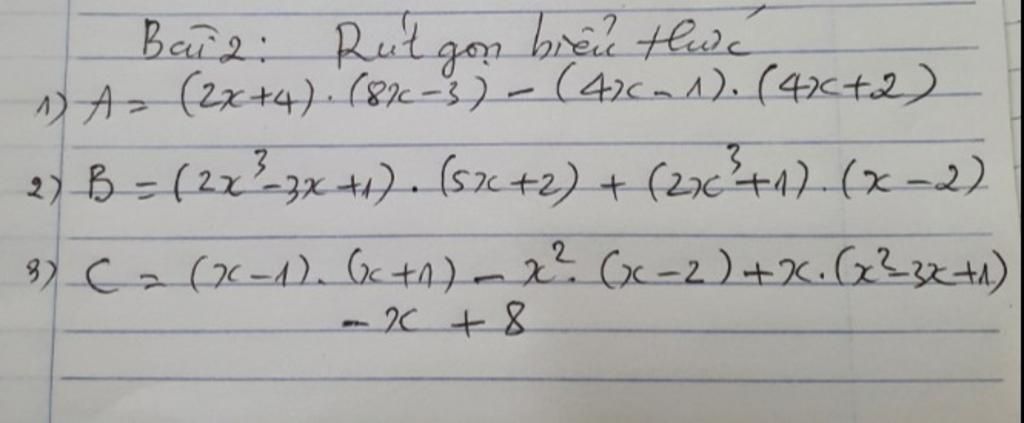 Bài 2: Rút gọn biểu thức
1) A = (2x+4).(8x-3) - (4x-1).(4x+2)
2) B = (2x³-3x+1).(5x+2) + (2x³+1).(x-2)
3) C = (x-1).(x+1) - x².(x-2)+x.(x²-3x+1)
- x + 8